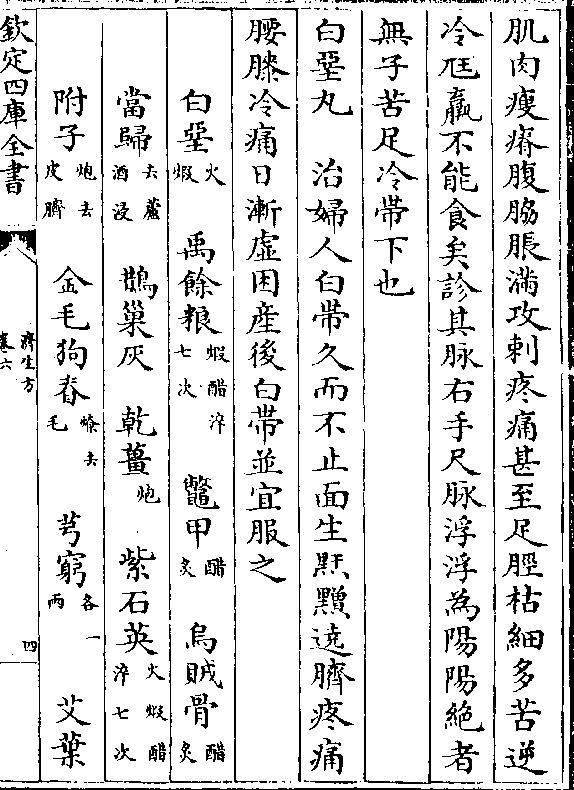 肌肉瘦瘠腹脇脹滿攻刺疼痛甚至足脛枯細多苦逆
冷尪羸不能食矣診其脉右手尺脉浮浮為陽陽絶者
無子苦足冷帶下也
白堊丸　治婦人白帶久而不止面生䵟䵳遶臍疼痛
腰膝冷痛日漸虛困産後白帶並宜服之
白堊火煆　禹餘粮煆醋淬七次　鼈甲醋炙　烏賊骨醋炙
當歸去蘆酒浸　鵲巢灰　乾薑炮　紫石英火煆醋淬七次
附子炮去皮臍　金毛狗脊燎去毛　芎窮各一兩　艾葉
欽定四庫全書
濟生方
卷六
四